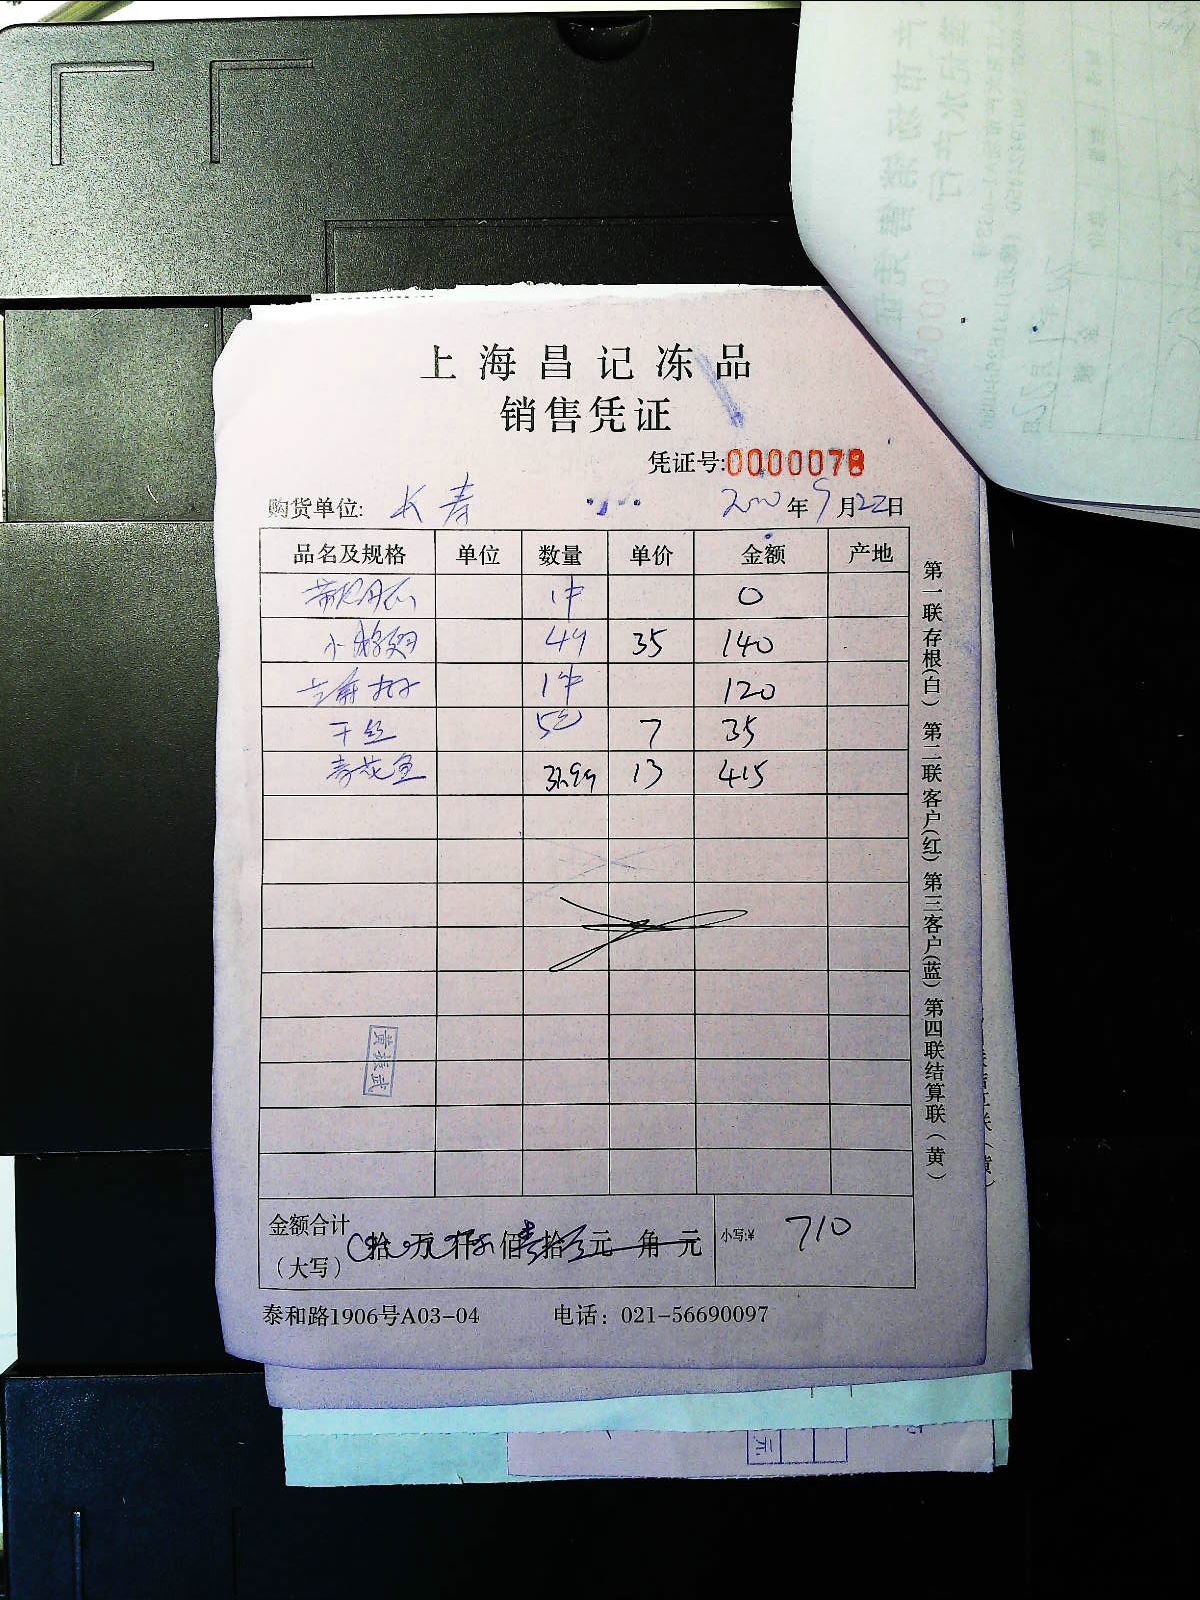 上海昌记冻品
销售凭证
凭证号:0000078
购货单位: 长寿 年9月22日
品名及规格 单位 数量 单价 金额 产地
1件 0
小 35 140
1件 120
干丝 5包 7 35
青花鱼 13 415
黄振武
金额合计
(大写) 拾 万 仟 佰 拾 元 角 元 小写:¥ 710
泰和路1906号A03-04 电话: 021-56690097
第一联存根(白) 第二联客户(红) 第三客户(蓝) 第四联结算联(黄)